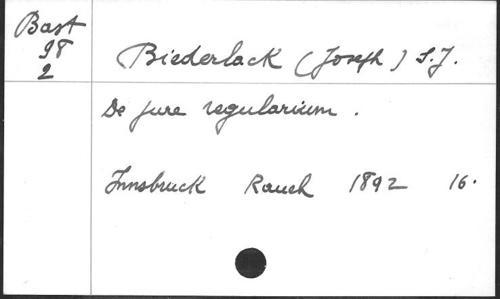 Bast
98
2
Biederlack (Joseph) S.J.
De jure regularium.
Innsbruck Rauch 1892 16.